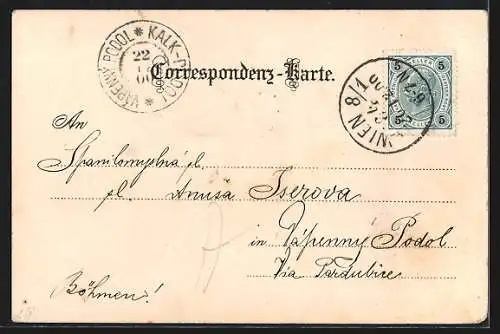 VÁPENNÝ PODOL * KALK-PODOL *
22
00
Correspondenz-Karte.
WIEN 8/1
5 5
5 5
An
Spanilomyslná sl.
sl. Anuša Iserova
in Vápenný Podol
Via Pardubice
Böhmen!